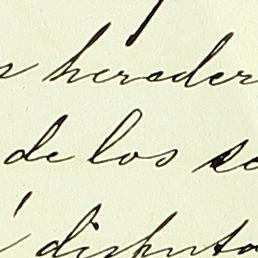 s hereder
de los se
disputa